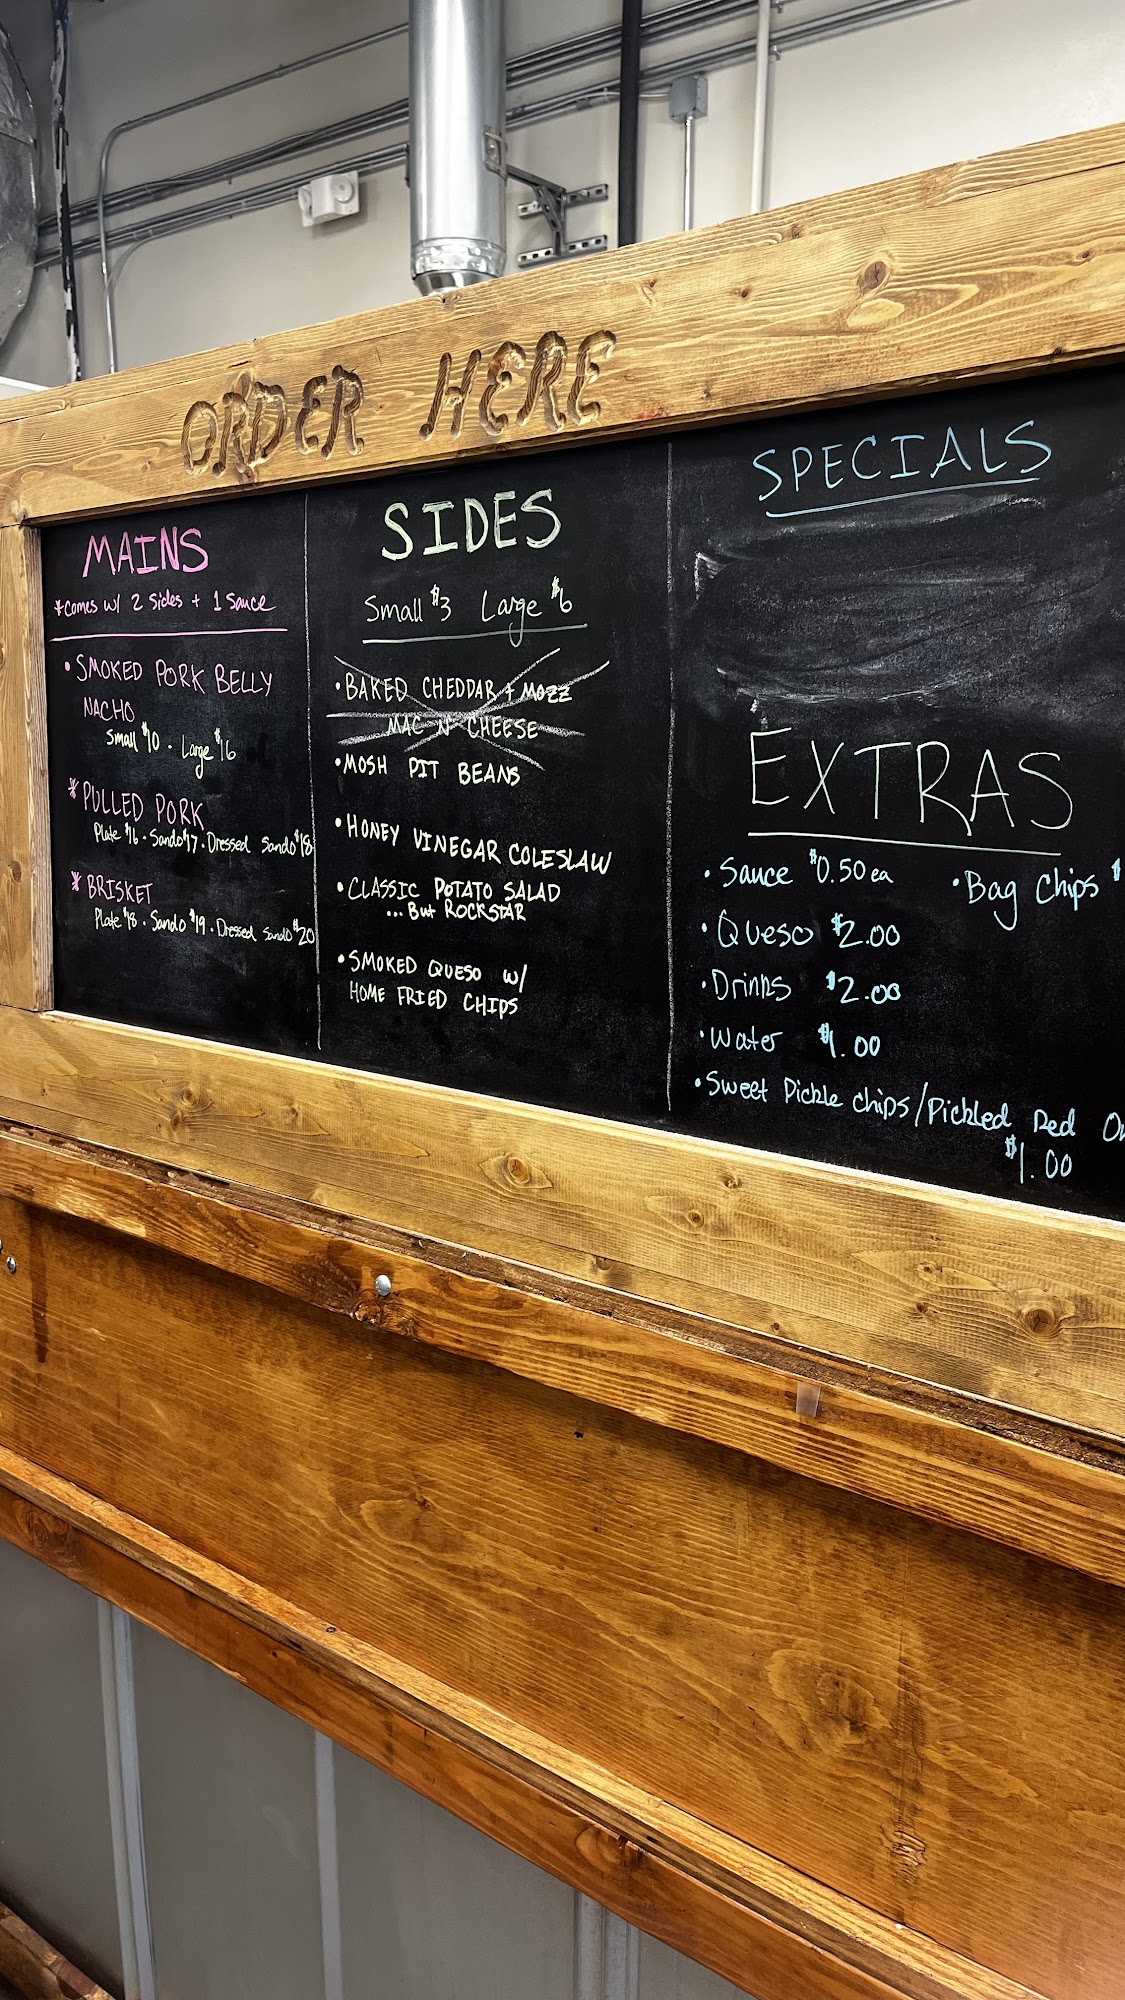 ORDER HERE
MAINS
*Comes w/ 2 Sides + 1 Sauce
• SMOKED PORK BELLY
NACHO
Small $10 · Large $16
* PULLED PORK
Plate $16 · Sando $17 · Dressed Sando $18
* BRISKET
Plate $18 · Sando $19 · Dressed Sando $20
SIDES
Small $3 Large $6
• BAKED CHEDDAR + MOZZ
MAC N' CHEESE
• MOSH PIT BEANS
• HONEY VINEGAR COLESLAW
• CLASSIC POTATO SALAD
... But ROCKSTAR
• SMOKED QUESO w/
HOME FRIED CHIPS
SPECIALS
EXTRAS
• Sauce $0.50 ea
• Bag Chips $
• Queso $2.00
• Drinks $2.00
• Water $1.00
• Sweet Pickle chips/Pickled Red
$1.00